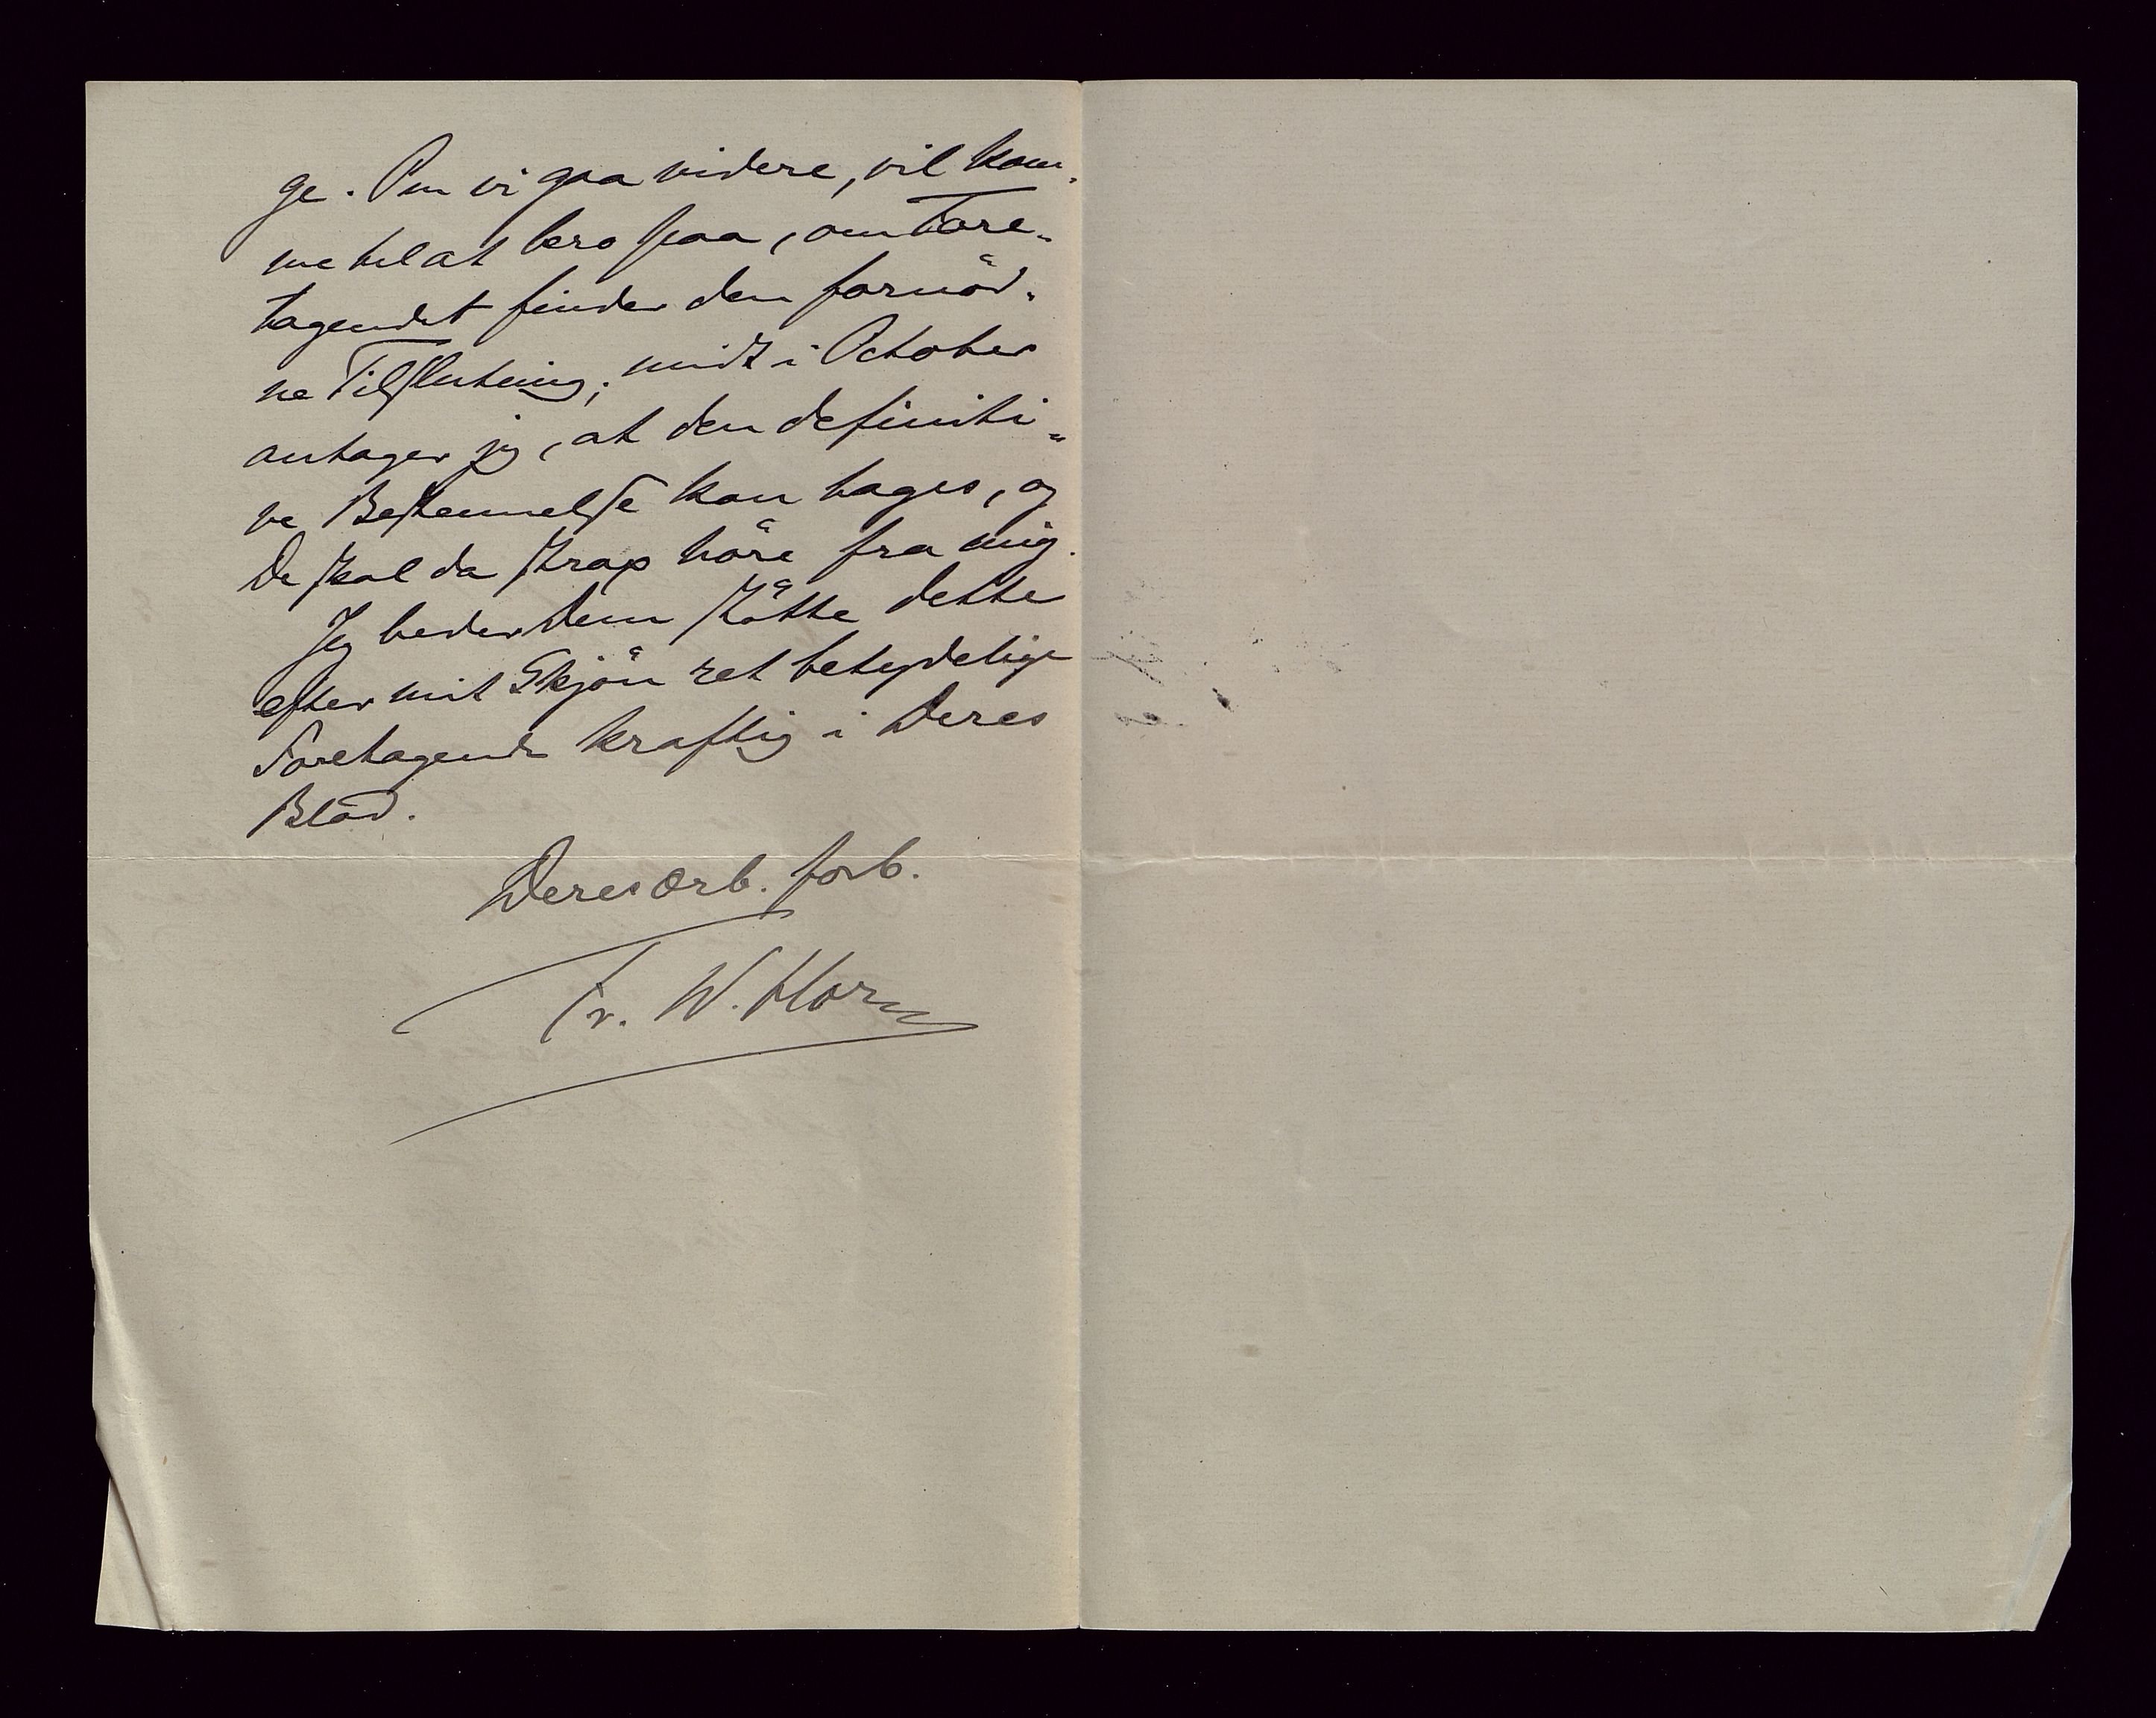 ge. Om vi gaa videre, vil kom-
me til at bero paa, om Fore-
tagendet finder den fornöd-
ne Tilslutning; midt i October
antager jeg, at den definiti-
ve Bestemmelse kan tages, og
De skal da strax höre fra mig.
Jeg beder Dem stötte dette
efter mit Skjön ret betydelige
Foretagende kraftig i Deres
Blad.
Deres ærb. forb.
Fr. W. Horn